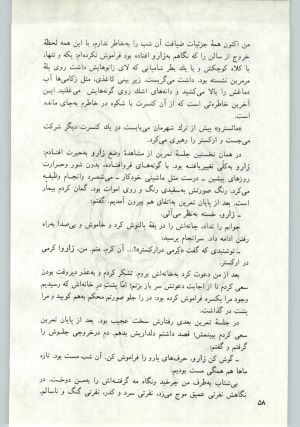 من اکنون همهٔ جزئیات ضیافت آن شب را به‌خاطر ندارم، با این همه لحظهٔ
خروج از سالن را که نگاهم به‌زارو افتاده بود فراموش نکرده‌ام: یکه و تنها،
با کلاه کوچکش و با یك بطر شامپانی که لای زانوهایش داشت روی پلهٔ
مرمرین نشسته بود. داشت می‌گریست. زیر بینی کاغذی، مثل زکامی‌ها آب
دماغش را بالا می‌کشید و دانه‌های اشك روی گونه‌هایش می‌غلتید. این
آخرین خاطره‌ئی است که از آن کنسرت با شکوه در خاطرم به‌جای مانده
است.
«مائسترو» پیش از ترك شهرمان می‌بایست در یك کنسرت دیگر شرکت
می‌جست و ارکستر را رهبری می‌کرد.
در همان نخستین جلسهٔ تمرین از مشاهدهٔ وضع زارو به‌حیرت افتادم:
زارو به‌کلی تغییریافته بود. با گونه‌های فروافتاده، بدون شور وحرارت
روزهای پیشین ـ درست مثل ماشینی خودکار ـ می‌شمرد وانجام وظیفه
می‌کرد. رنگ صورتش به‌سفیدی رنگ و روی اموات بود. گمان کردم بیمار
است. بعد از پایان تمرین به‌اتفاق هم بیرون آمدیم. گفتم:
ـ زارو، خسته به‌نظر می‌آئی.
جوابم را نداد، چانه‌اش را در یقهٔ پالتوش کرد و خاموش و بی‌صدا به‌راه
رفتن ادامه داد. سرانجام پرسید:
ـ نوشنیدی که گفت «کرمی درارکستر»!... آن کرم، منم. من، زارو! کرمی
در ارکستر!
بعد از من دعوت کرد به‌خانه‌اش بروم. تشکر کردم و به‌عذر دیروقت بودن
سعی کردم تا از اجابت دعوتش سر باز بزنم؛ اما پشت در خانه‌اش که رسیدیم
وجود مرا یکسره فراموش کرده بود: در را جلو صورتم محکم به‌هم کوبید و مرا
پشت در گذاشت.
در جلسهٔ تمرین بعدی رفتارش سخت عجیب بود. بعد از پایان تمرین
سعی کردم ببینمش؛ قصد داشتم دلداریش بدهم. دم درخروجی جلوش را
گرفتم و گفتم:
ـ گوش کن زارو، حرف‌های یارو را فراموش کن. آن شب مست بود. تازه
ماها هم همگی مست بودیم.
بی‌شتاب به‌طرف من چرخید ونگاه مه گرفته‌اش را به‌من دوخت. در
نگاهش نفرتی عمیق موج می‌زد، نفرتی سرد و کدر، نفرتی گنگ و ناسالم.
۵۸